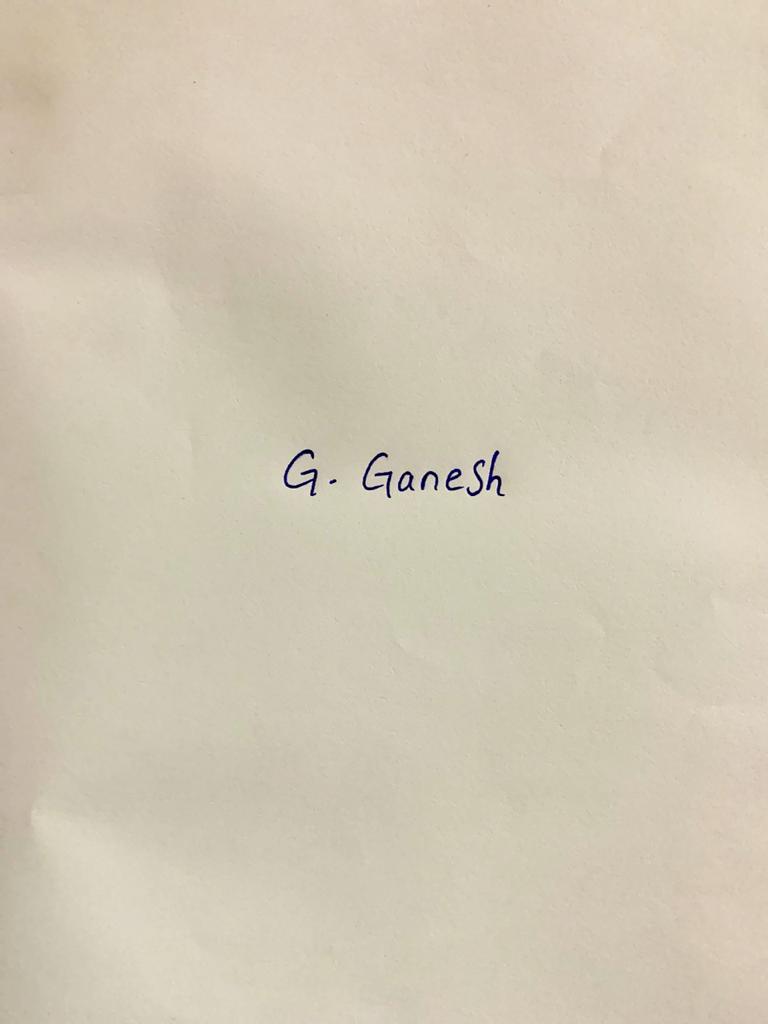 G. Ganesh